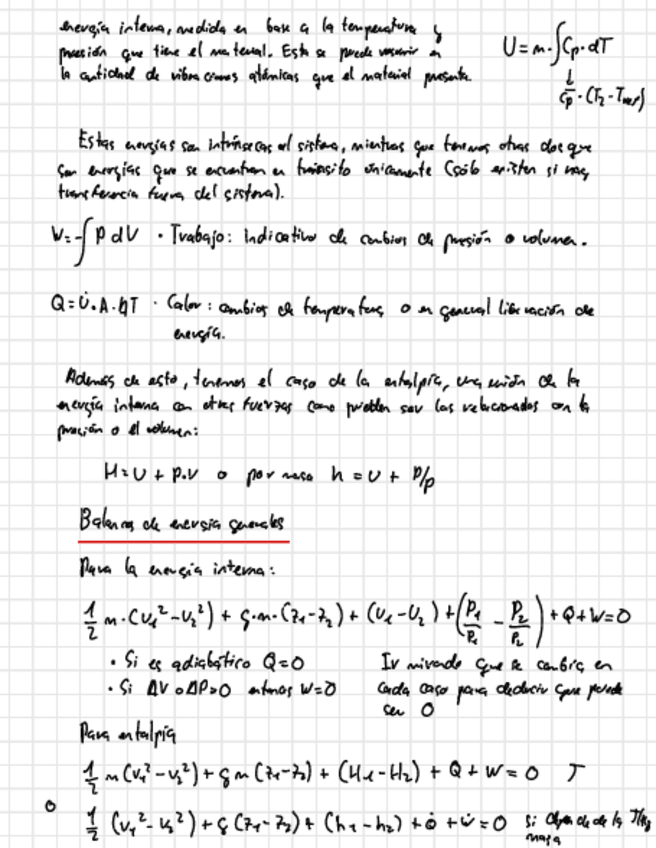 energía interna, medida en base a la temperatura y
presión que tiene el material. Esta se puede resumir en
la cantidad de vibraciones atómicas que el material presenta.
U = m·∫Cp·dT
↓
Cp·(T₂-Tref)
Estas energías son intrínsecas al sistema, mientras que tenemos otras dos que
son energías que se encuentran en tránsito únicamente (sólo existen si hay
transferencia fuera del sistema).
W=-∫P dV · Trabajo: indicativo de cambios de presión o volumen.
Q=U·A·ΔT · Calor: cambios de temperatura o en general liberación de
energía.
Además de esto, tenemos el caso de la entalpía, una unión de la
energía interna con otras fuerzas como pueden ser las relacionadas con la
presión o el volumen:
H=U+P·V o por masa h=U+P/ρ
Balances de energía generales
Para la energía interna:
1/2 m·(v₁²-v₂²)+g·m·(z₁-z₂)+(U₁-U₂)+(P₁/ρ₁-P₂/ρ₂)+Q+W=0
· Si es adiabático Q=0
· Si ΔV o ΔP=0 entonces W=0
Ir mirando que se cambia en
cada caso para deducir que puede
ser 0
Para entalpía
1/2 m(v₁²-v₂²)+g m(z₁-z₂)+(H₁-H₂)+Q+W=0 J
1/2 (v₁²-v₂²)+g(z₁-z₂)+(h₁-h₂)+Q̇+Ẇ=0 si de la J/kg
masa